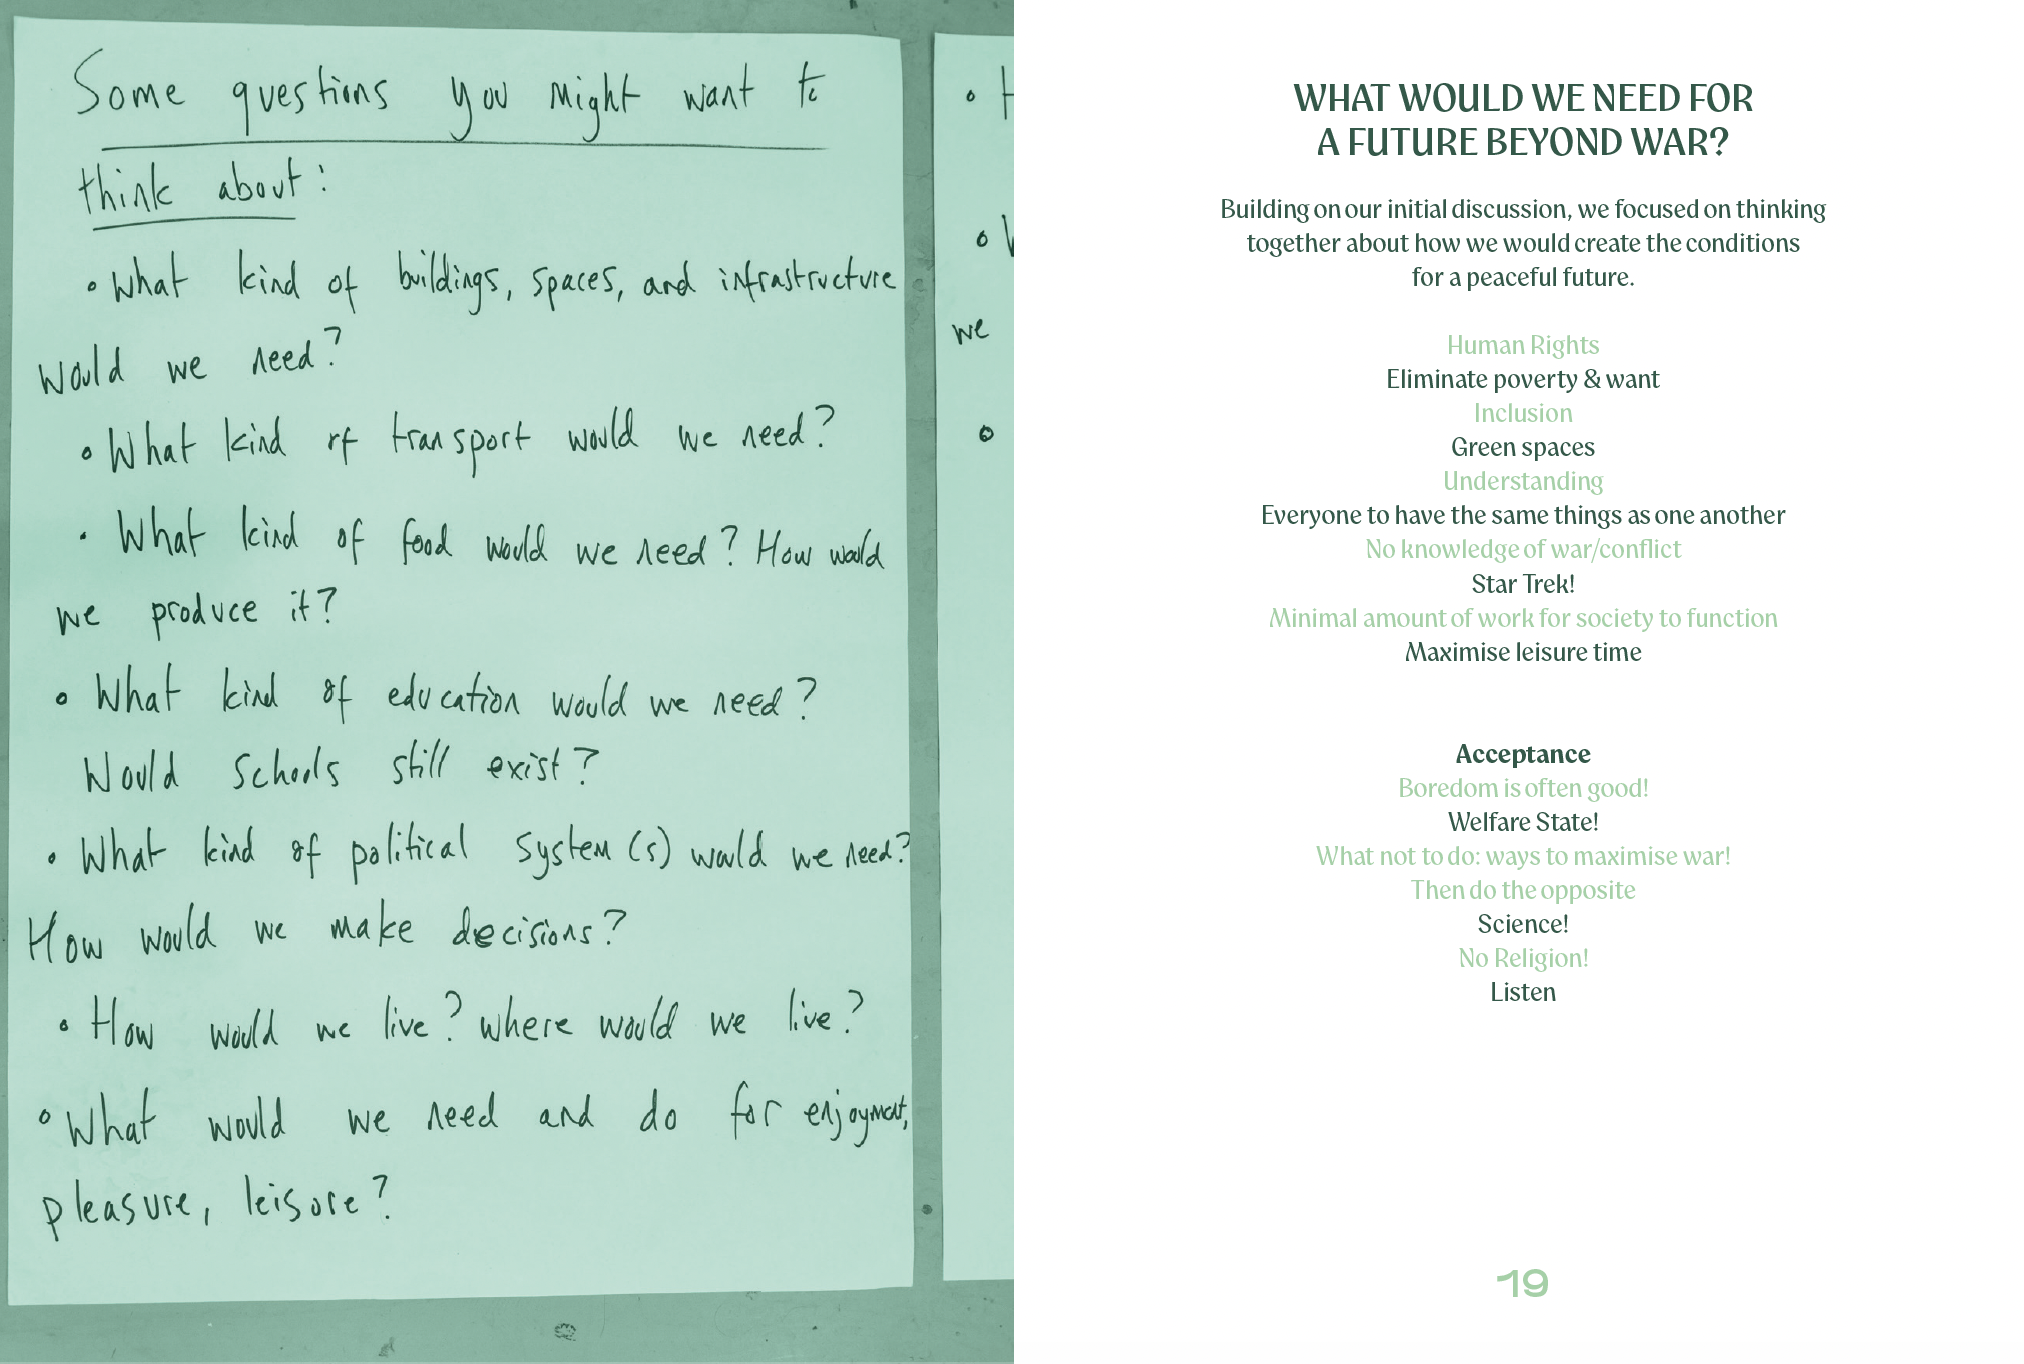 Some questions you might want to
think about:
• What kind of buildings, spaces, and infrastructure
would we need?
• What kind of transport would we need?
• What kind of food would we need? How would
we produce it?
• What kind of education would we need?
Would schools still exist?
• What kind of political system(s) would we need?
How would we make decisions?
• How would we live? where would we live?
• What would we need and do for enjoyment,
pleasure, leisure?
we
WHAT WOULD WE NEED FOR
A FUTURE BEYOND WAR?
Building on our initial discussion, we focused on thinking
together about how we would create the conditions
for a peaceful future.
Human Rights
Eliminate poverty & want
Inclusion
Green spaces
Understanding
Everyone to have the same things as one another
No knowledge of war/conflict
Star Trek!
Minimal amount of work for society to function
Maximise leisure time
Acceptance
Boredom is often good!
Welfare State!
What not to do: ways to maximise war!
Then do the opposite
Science!
No Religion!
Listen
19